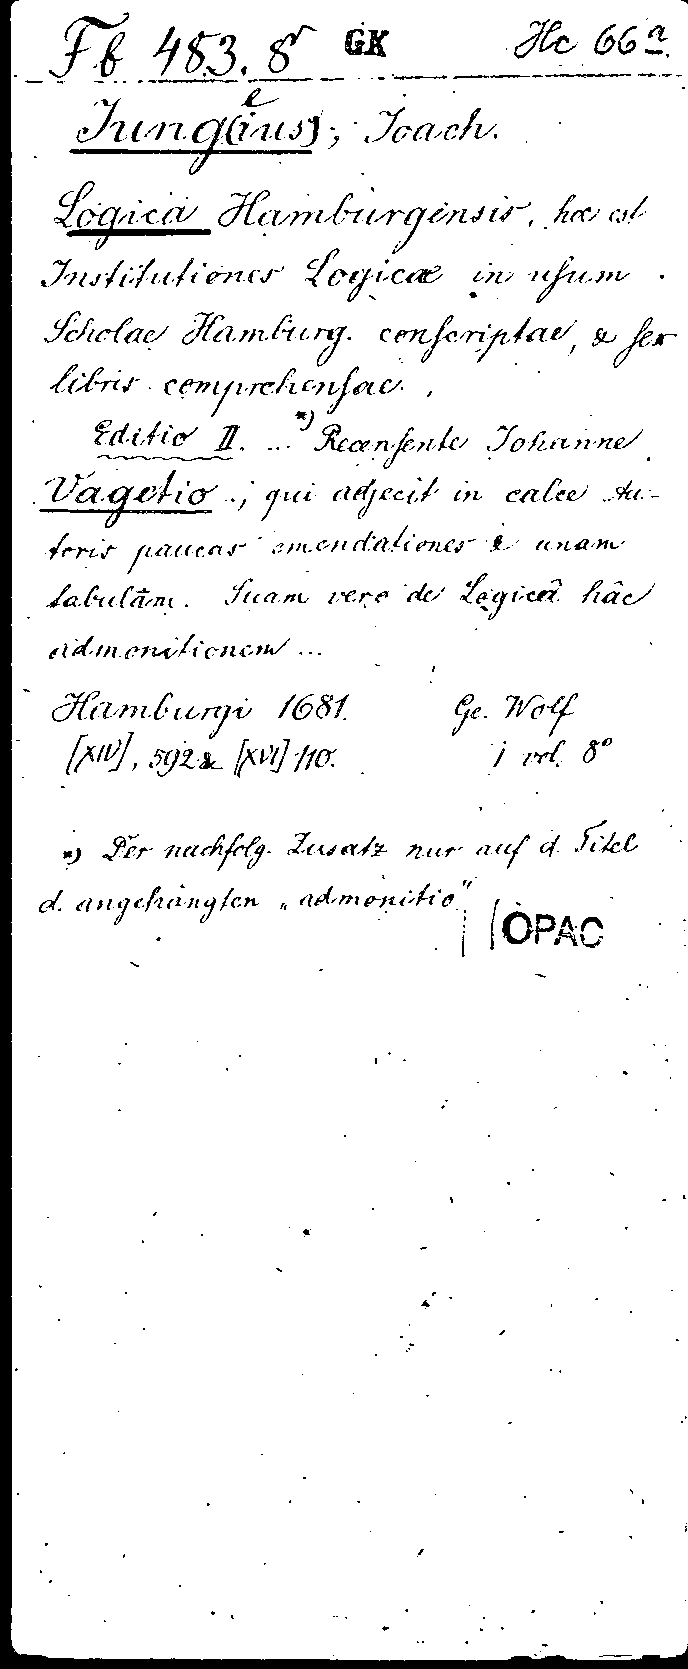 Ff 483. 8° GK Hc 66a.
Jung(ius)e; Joach.
Logica Hamburgensis, hoc est
Institutiones Logicæ in usum
Scholae Hamburg. conscriptae, & sex
libris comprehensae.
Editio II. ... *) Recensente Johanne
Vagetio; qui adjecit in calce Au-
toris paucas emendationes & unam
tabulam. Suam vero de Logicâ hâc
admonitionem ...
Hamburgi 1681. Ge. Wolf
[XIV], 592 & [XVI] 110. 1 vol. 8°
*) Der nachfolg. Zusatz nur auf d. Titel
d. angehängten „admonitio"
OPAC